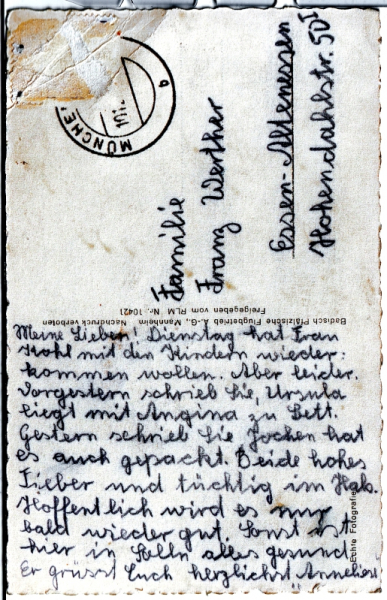 MÜNCHE
b
Familie
Franz Werther
Essen-Altenessen
Hohendahlstr. 50 I
Badisch Pfälzische Flugbetrieb A.-G., Mannheim Nachdruck verboten
Freigegeben vom RLM Nr. 10421
Meine Lieben! Dienstag hat Frau
Kohl mit den Kindern wieder-
kommen wollen. Aber leider.
Vorgestern schrieb Sie, Ursula
liegt mit Angina zu Bett.
Gestern schrieb Sie Jochen hat
es auch gepackt. Beide hohes
Fieber und tüchtig im Hals.
Hoffentlich wird es nur
bald wieder gut. Sonst ist
hier in Solln alles gesund.
Er grüsst Euch herzlichst Annelies
Echte Fotografie